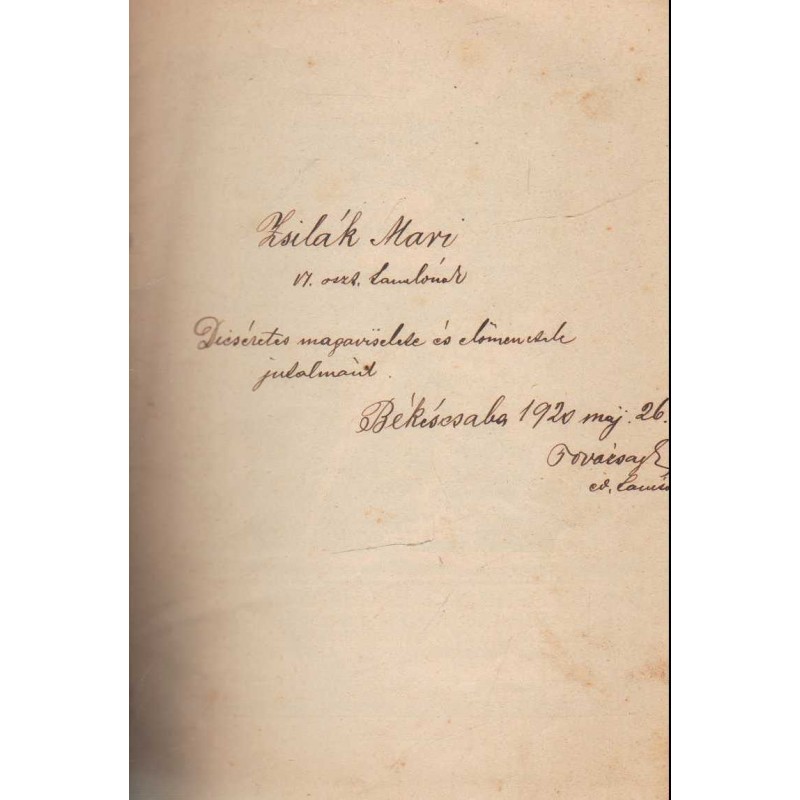 Zsilák Mari
VI. oszt. tanulónak
Dicséretes magaviselete és előmenetele
jutalmául.
Békéscsaba 1920 máj. 26.
ev. tanító